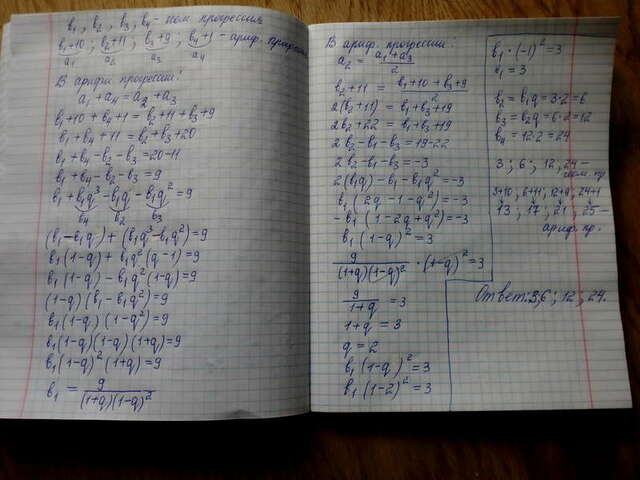 в₁, в₂, в₃, в₄ - геом. прогрессия
в₁+10; в₂+11; в₃+9; в₄+1 - ариф. прогрессия
а₁ а₂ а₃ а₄
В арифм прогрессии:
а₁ + а₄ = а₂ + а₃
в₁+10 + в₄+1 = в₂+11 + в₃+9
в₁ + в₄ + 11 = в₂ + в₃ + 20
в₁ + в₄ - в₂ - в₃ = 20-11
в₁ + в₄ - в₂ - в₃ = 9
в₁ + в₁q³ - в₁q - в₁q² = 9
в₄ в₂ в₃
(в₁ - в₁q) + (в₁q³ - в₁q²) = 9
в₁(1-q) + в₁q²(q-1) = 9
в₁(1-q) - в₁q²(1-q) = 9
(1-q)(в₁ - в₁q²) = 9
в₁(1-q)(1-q²) = 9
в₁(1-q)(1-q)(1+q) = 9
в₁(1-q)²(1+q) = 9
в₁ = 9/((1+q)(1-q)²)
В ариф. прогрессии:
а₂ = (а₁+а₃)/2
в₂+11 = (в₁+10 + в₃+9)/2
2(в₂+11) = в₁+в₃+19
2в₂+22 = в₁+в₃+19
2в₂ - в₁ - в₃ = 19-22
2в₂ - в₁ - в₃ = -3
2(в₁q) - в₁ - в₁q² = -3
в₁(2q - 1 - q²) = -3
-в₁(1 - 2q + q²) = -3
в₁(1-q)² = 3
9/((1+q)(1-q)²) · (1-q)² = 3
9/(1+q) = 3
1+q = 3
q = 2
в₁(1-q)² = 3
в₁(1-2)² = 3
в₁·(-1)² = 3
в₁ = 3
в₂ = в₁q = 3·2 = 6
в₃ = в₂q = 6·2 = 12
в₄ = 12·2 = 24
3; 6; 12; 24 -
геом. пр
3+10; 6+11; 12+9; 24+1
13; 17; 21; 25 -
ариф. пр.
Ответ: 3; 6; 12; 24.